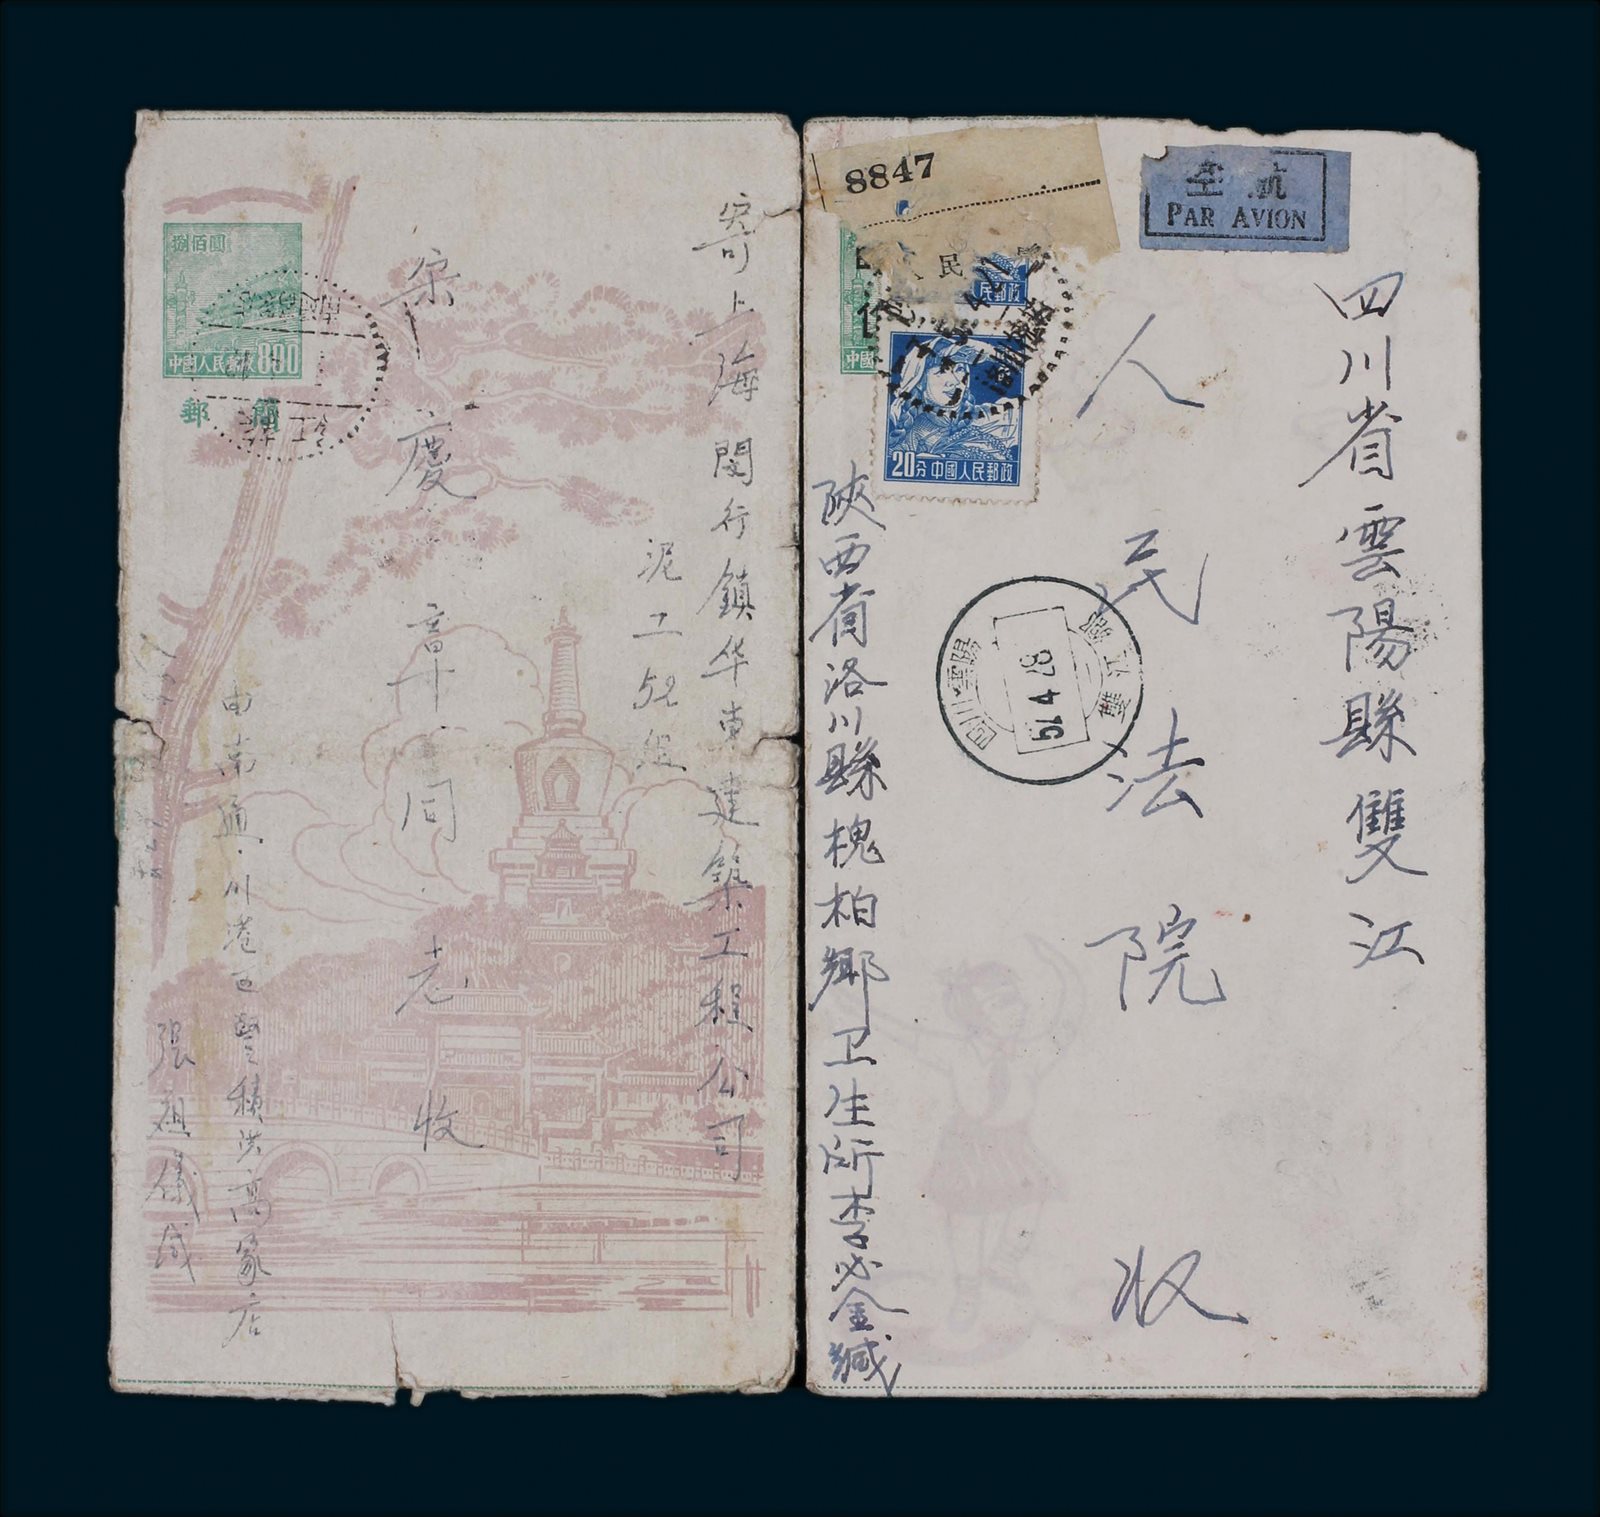 捌佰圓
中國人民郵政800
郵簡
寄上海閔行鎮华東建築工程公司
泥工52组
宋慶章同志收
由南通川港区豐積洪高家店
張祖儀缄
8847
航空
PAR AVION
民
民郵政
20分中國人民郵政
中國
四川省雲陽縣雙江
人民法院收
陝西省洛川縣槐柏鄉卫生所李必金缄
四川雲陽
57 4 28
雙江鎮